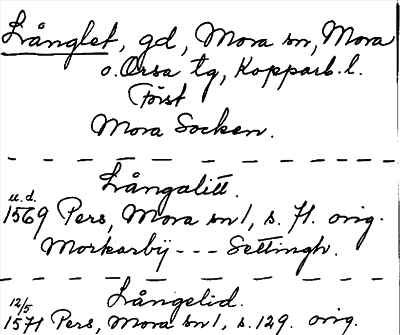 Långlet, gd, Mora sn, Mora
o. Orsa tg, Kopparb. l.
Först
Mora Socken.
Långalitt.
u.d.
1569 Pers, Mora sn 1, s. 71. orig.
Morkarbÿ --- Settingh.
Långelid.
12/5
1571 Pers, Mora sn 1, s. 129. orig.